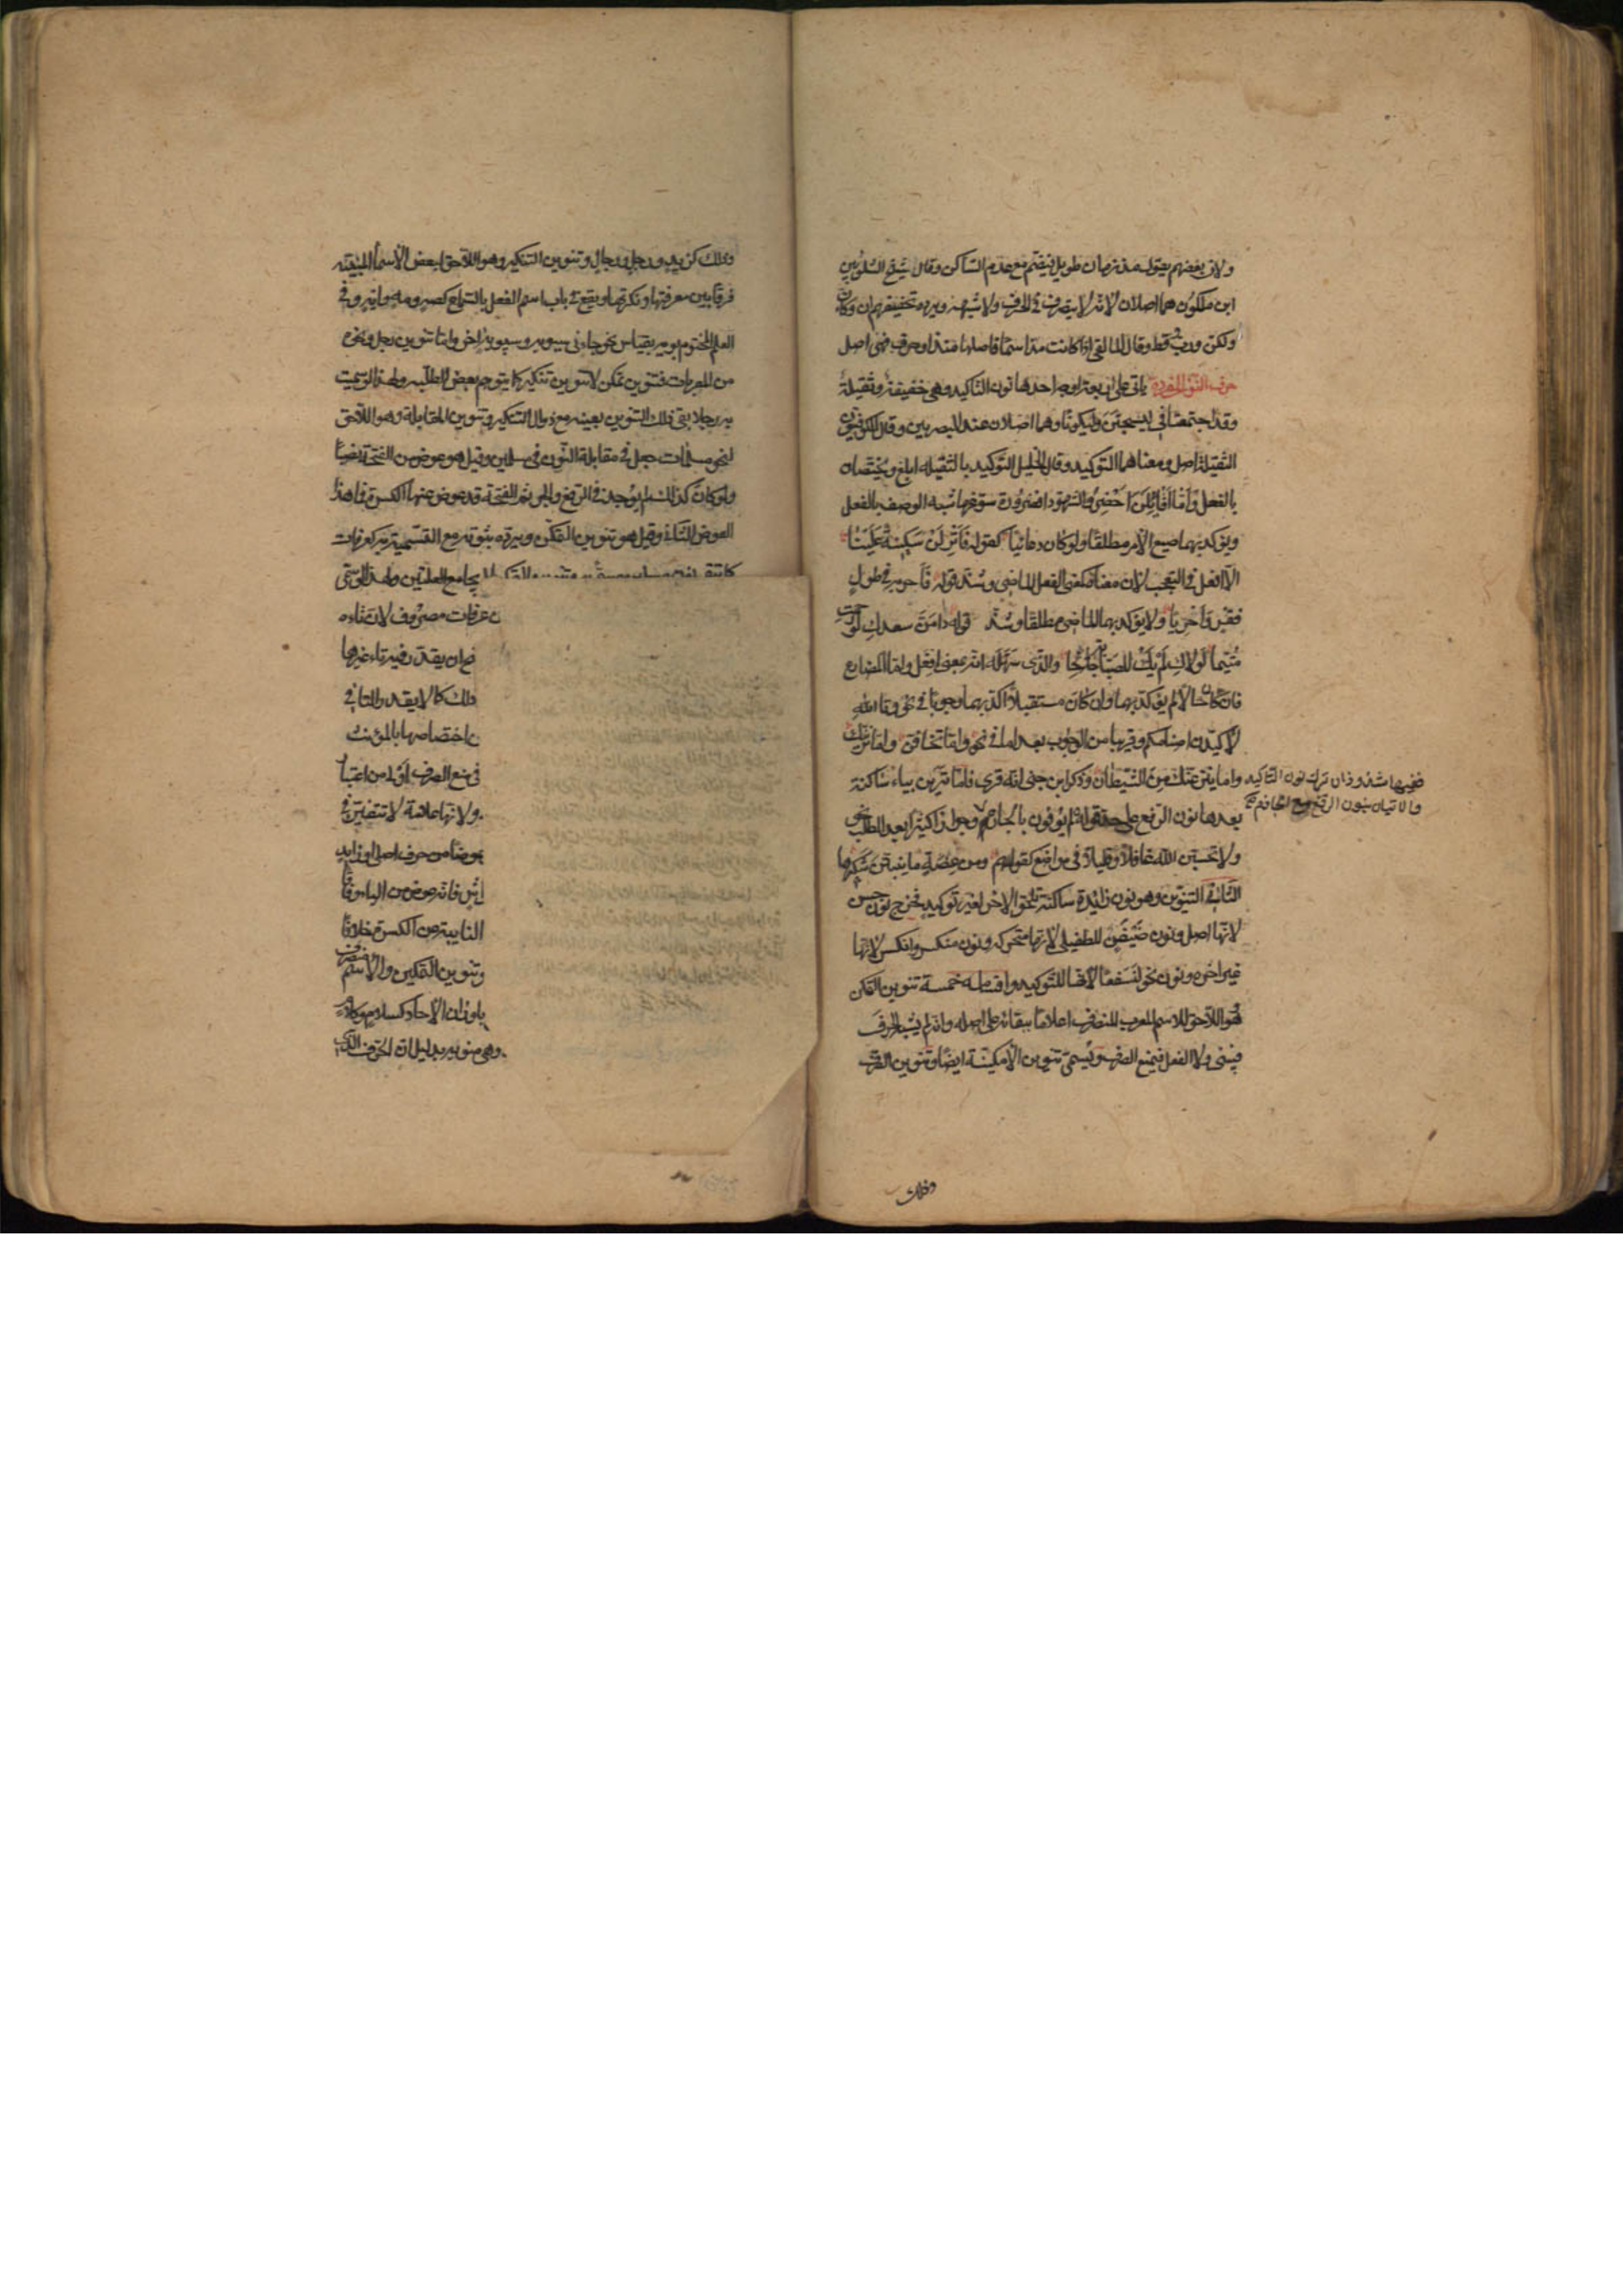 ولان بعضهم يقول مذ زمان طويل فيضم مع عدم الساكن وقال شيخ الشلوبين
ابن ملكون هما اصلان لانه لا يتصرف في الحرف ولا شبهه ويرده تخفيفهم ان وكان
ولكن ورب وقط وقال المالقي اذا كانت مذ اسما فاصلها منذ او حرف فهي اصل
حرف النون المفردة ياتي على اربعة اوجه احدها نون التاكيد وهي خفيفة وثقيلة
وقد اجتمعتا في ليسجنن وليكونا وهما اصلان عند البصريين وقال الكوفيون
الثقيلة اصل ومعناهما التوكيد وقال الخليل التوكيد بالثقيلة ابلغ ويختصان
بالفعل واما اقائلن احضري الشهودا فضرورة سوغها شبه الوصف بالفعل
ويؤكد بهما صيغ الامر مطلقا ولو كان دعائيا كقوله فانزلن سكينة علينا
الا افعل في التعجب لان معناه كمعنى الفعل الماضي وشذ قوله فاحر به في طول
فقر واحريا ولا يؤكد بهما الماضي مطلقا وشذ قوله دامن سعدك لو رحمت
متيما لولاك لم يك للصبابة جانحا والذي سهله انه بمعنى افعل واما المضارع
فان كان حالا لم يؤكد بهما وان كان مستقبلا اكد بهما وجوبا في نحو وتالله
لاكيدن اصنامكم وقريبا من الوجوب بعد اما في نحو واما تخافن واما نرينك
واما ينزغنك من الشيطان وذكر ابن جني انه قرئ فاما ترين بياء ساكنة
بعدها نون الرفع على حد قوله لم يوفون بالجار وجوازا كثيرا بعد الطلب نحو
ففيها شذوذان ترك نون التاكيد
والاتيان بنون الرفع مع الجازم
ولا تحسبن الله غافلا وقليلا في مواضع كقولهم ومن عضة ما ينبتن شكيرها
الثاني التنوين وهو نون زائدة ساكنة تلحق الاخر لغير توكيد فخرج نون حسن
لانها اصل ونون ضيفن للطفيلي لانها متحركة ونون منكسر وانكسر لانها
غير اخر ونون نحو لنسفعا لانها للتوكيد واقسامه خمسة تنوين التمكن
هو اللاحق للاسم المعرب المنصرف اعلاما ببقائه على اصله وانه لم يشبه الحرف
فيبنى ولا الفعل فيمنع الصرف ويسمى تنوين الامكنية ايضا وتنوين الصرف
وذلك
وذلك كزيد ورجل ورجال وتنوين التنكير وهو اللاحق لبعض الاسماء المبنية
فرقا بين معرفتها ونكرتها ويقع في باب اسم الفعل بالسماع كصه ومه وايه وفي
العلم المختوم بويه بقياس نحو جاءني سيبويه وسيبويه اخر واما تنوين رجل ونحوه
من المعربات فتنوين تمكن لا تنوين تنكير كما يتوهم بعض الطلبة ولهذا لو سميت
به رجلا بقي ذلك التنوين بعينه مع زوال التنكير وتنوين المقابلة وهو اللاحق
لنحو مسلمات جعل في مقابلة النون في مسلمين وقيل هو عوض من الفتحة نصبا
ولو كان كذلك لم يوجد في الرفع والجر ثم الفتحة قد عوض عنها الكسرة فما هذا
العوض الثاني وقيل هو تنوين التمكن ويرده ثبوته مع التسمية به كعرفات
يجامع العلتين ولهذا لو سمي
عرفات مصروف لان تاءه
ح ان يقدر فيه تاء غيرها
ذلك كما لا يقدر والتا في
اختصاصها بالمؤنث
في منع الصرف
ولانها علامة لا تتغير في
عوضا من حرف اصلي او زايد
فانه عوض من الياء وفاقا
النايبة عن الكسرة خلافا
وتنوين التمكين والاسم منصرف
باوزان الاحاد كسلام وكلام
وهي منويه بدليل ان الحرف الذي